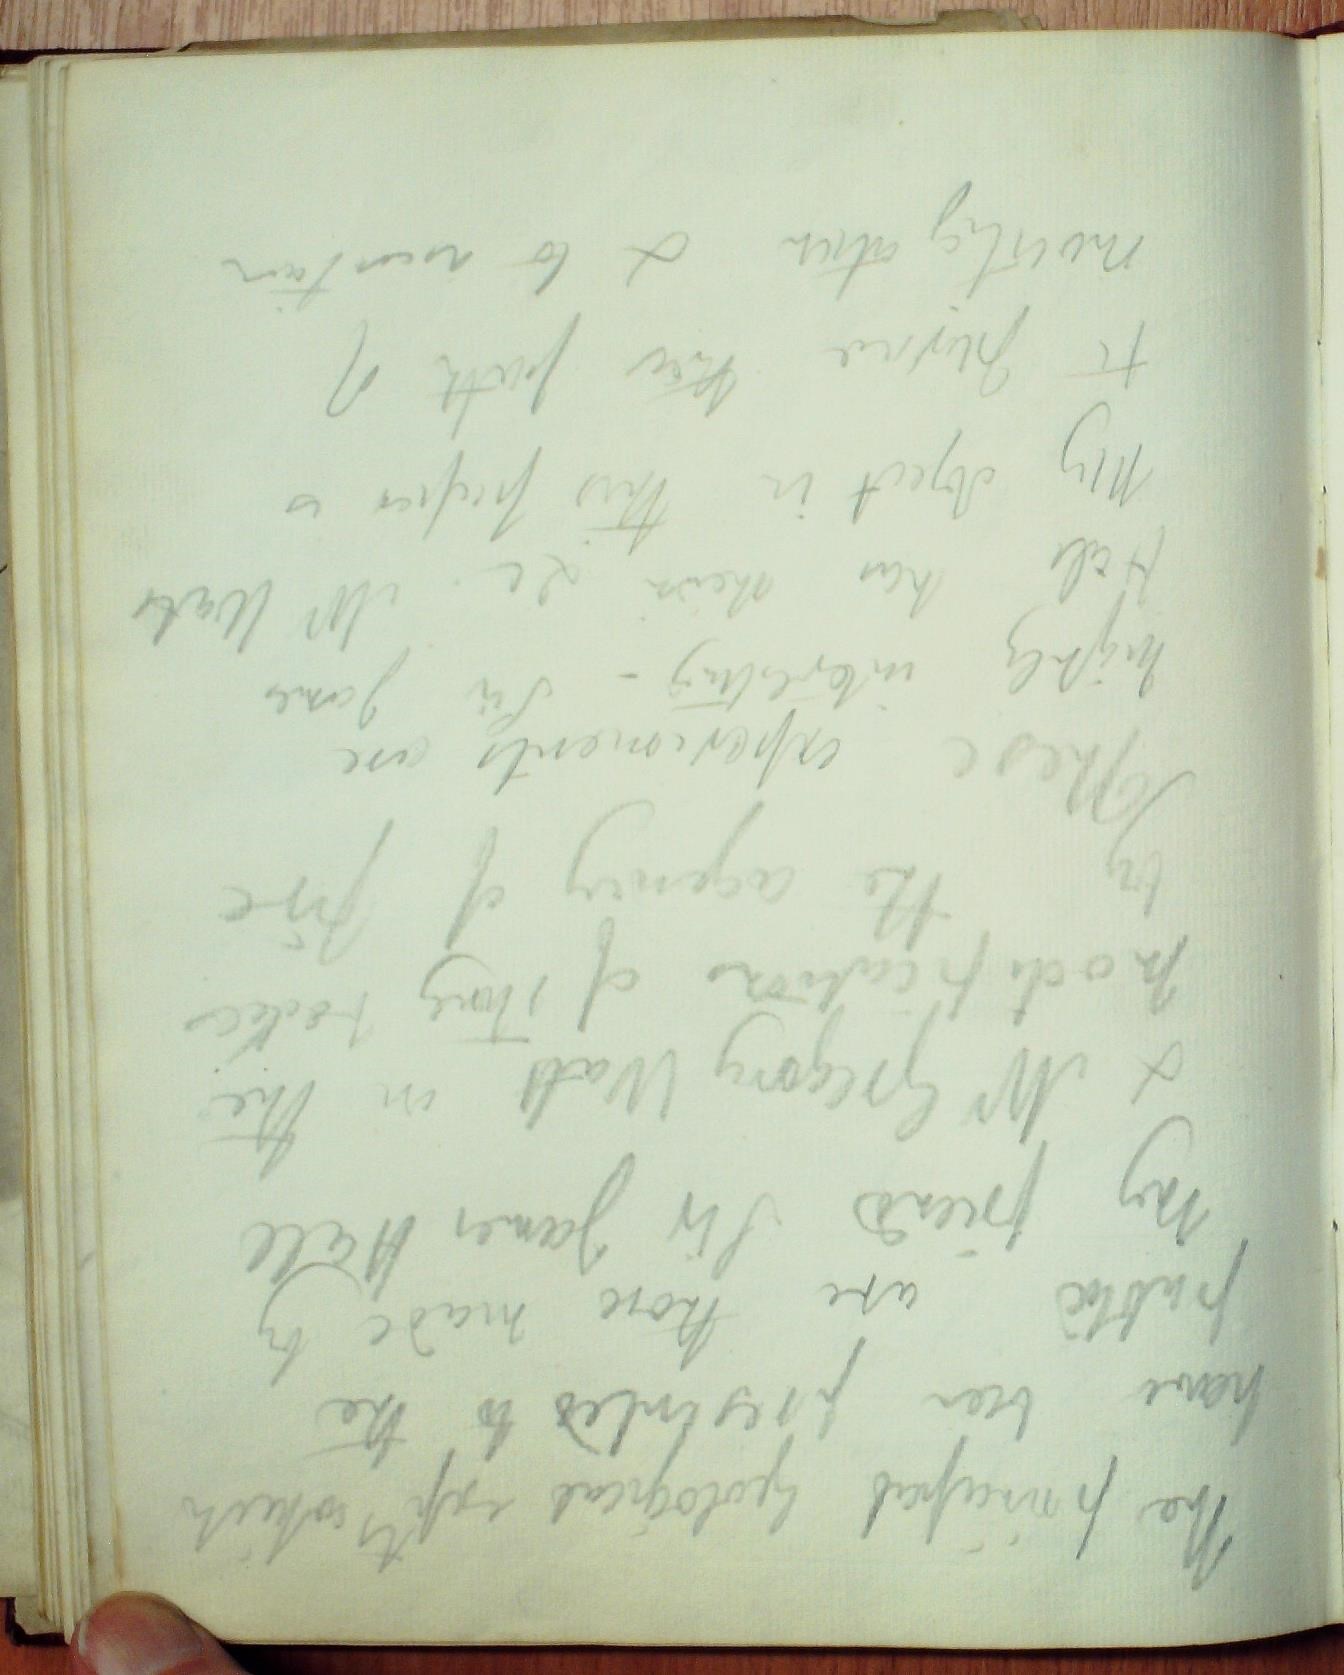 The principal Geological expts which
have been presented to the
public are those made by
my friend Sir James Hall
& Mr Gregory Watt in the
modifications of stony bodies
by the agency of fire
These experiments are
highly interesting - Sir James
Hall has shewn &c. Mr Watt
My object in this paper is
to pursue this path of
investigation & to ascertain